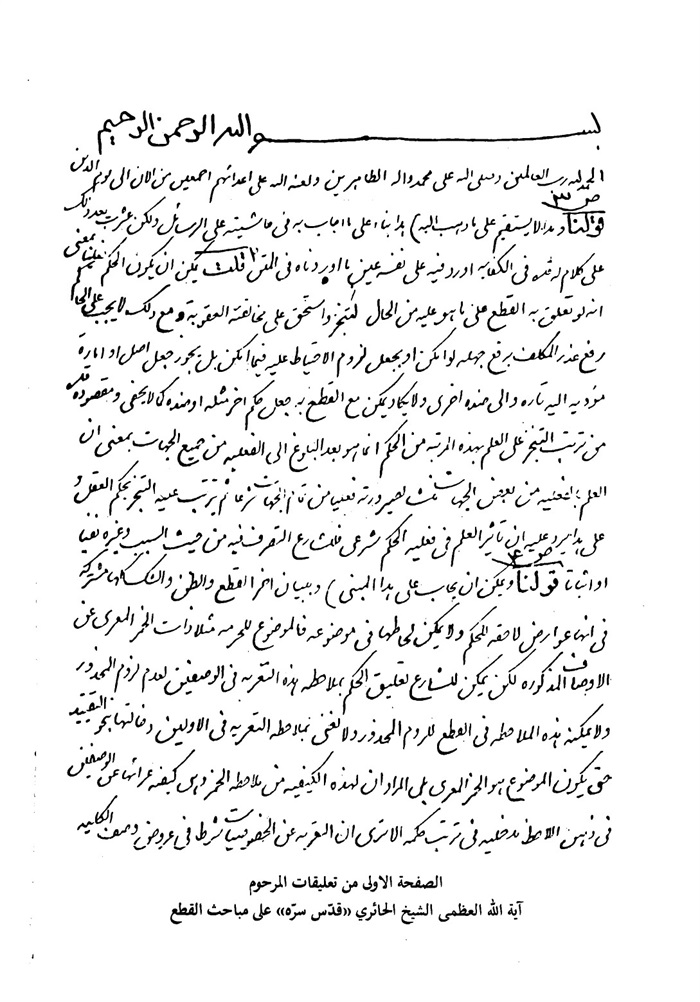 بسم الله الرحمن الرحيم
الحمد لله رب العالمين وصلى الله على محمد واله الطاهرين ولعنة الله على اعدائهم اجمعين من الان الى يوم الدين
ص ٣
قولنا وهذا لا يستقيم على ما ذهب اليه) هذا بناء على ما اجاب به في حاشيته على الرسائل ولكن عثرت بعد ذلك
على كلام له قده في الكفاية اورد فيه على نفسه عين ما اوردناه في المتن قلت يمكن ان يكون الحكم فعليا بمعنى
انه لو تعلق به القطع على ما هو عليه من الحال لتنجز واستحق على مخالفته العقوبة ومع ذلك لا يجب على الحاكم
رفع عذر المكلف برفع جهله لو امكن او بجعل لزوم الاحتياط عليه فيما امكن بل يجوز جعل اصل او امارة
مؤدية اليه تارة والى ضده اخرى ولا يكاد يمكن مع القطع به جعل حكم اخر مثله او ضده كما لا يخفى ومقصوده قده
من ترتب التنجز على العلم بهذه المرتبة من الحكم انما هو بعد البلوغ الى الفعلية من جميع الجهات بمعنى ان
العلم بالفعلية من بعض الجهات لصيرورته فعليا من تمام الجهات شرعا ثم يترتب عليه التنجز بحكم العقل و
على هذا يرد عليه ان تأثير العلم في فعلية الحكم شرعي فللشارع التصرف فيه من حيث السبب وغيره نفيا
ص ٤
او اثباتا قولنا ويمكن ان يجاب على هذا المبنى) وببيان اخر القطع والظن والشك كلها مشتركة
في انها عوارض لاحقة للحكم ولا يمكن لحاظها في موضوعه فالموضوع للحرمة مثلا ذات الخمر المعرى عن
الاوصاف المذكورة لكن يمكن للشارع تعليق الحكم بملاحظة هذه التعرية في الوصفين لعدم لزوم المحذور
ولا يمكنه هذه الملاحظة في القطع للزوم المحذور ولا نعني بملاحظة التعرية في الاولين دخالتها بنحو التقييد
حتى يكون الموضوع هو الخمر المعرى بل المراد ان لهذه الكيفية من ملاحظة الخمر وهي كيفية عرائها عن الوصفين
في ذهن اللاحظ مدخلية في ترتب حكمه الا ترى ان التعرية عن الخصوصيات شرط في عروض وصف الكلية
الصفحة الاولى من تعليقات المرحوم
آية الله العظمى الشيخ الحائري «قدّس سرّه» على مباحث القطع